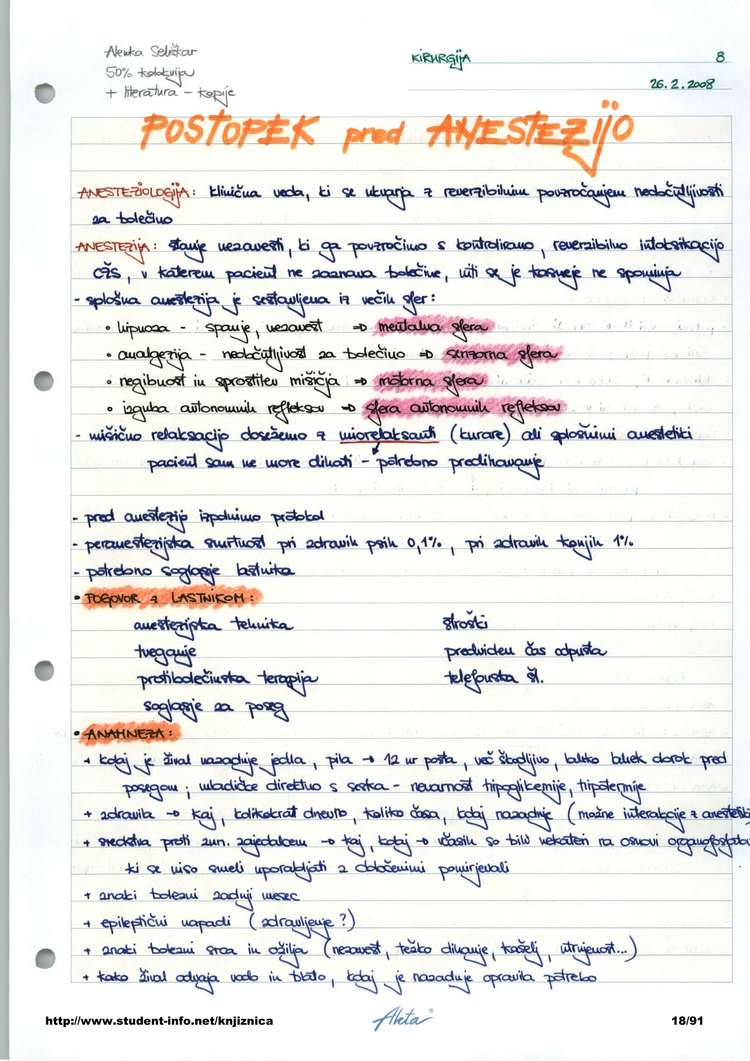 Alenka Seliškar
KIRURGIJA
8
50% kolokvija
+ literatura - kopije
26.2.2008
POSTOPEK pred ANESTEZIJO
ANESTEZIOLOGIJA: klinična veda, ki se ukvarja z reverzibilnim povzročanjem nedočutljivosti
za bolečino
ANESTEZIJA: stanje nezavesti, ki ga povzročimo s kontrolirano, reverzibilno intoksikacijo
CŽS, v katerem pacient ne zaznava bolečine, niti se je kasneje ne spominja
- splošna anestezija je sestavljena iz večih sfer:
• hipnoza - spanje, nezavest => mentalna sfera
• analgezija - nedočutljivost za bolečino => senzorna sfera
• negibnost in sprostitev mišičja => motorna sfera
• izguba avtonomnih refleksov => sfera avtonomnih refleksov
- mišično relaksacijo dosežemo z miorelaksanti (kurare) ali splošnimi anestetiki
pacient sam ne more dihati - potrebno predihavanje
- pred anestezijo izpolnimo protokol
- peranestezijska smrtnost pri zdravih psih 0,1%, pri zdravih konjih 1%
- potrebno soglasje lastnika
• POGOVOR z LASTNIKOM:
anestezijska tehnika
stroški
tveganje
predviden čas odpusta
protibolečinska terapija
telefonska št.
soglasje za poseg
• ANAMNEZA:
+ kdaj je žival nazadnje jedla, pila → 12 ur posta, več škodljivo, lahko bljek obrok pred
posegom; mladiče direktno s seska - nevarnost hipoglikemije, hipotermije
+ zdravila → kaj, kolikokrat dnevno, koliko časa, kdaj nazadnje (možne interakcije z anestetiki
+ sredstva proti zun. zajedalcem → kaj, kdaj → včasih so bili nekateri na osnovi organofosfatov
ki se niso smeli uporabljati z določenimi pomirjevali
+ znaki bolezni zadnji mesec
+ epileptični napadi (zdravljenje?)
+ znaki bolezni srca in ožilja (nezavest, težko dihanje, kašelj, utrujenost...)
+ kako žival odvaja vodo in blato, kdaj je nazadnje opravila potrebo
http://www.student-info.net/knjiznica
Akta
18/91